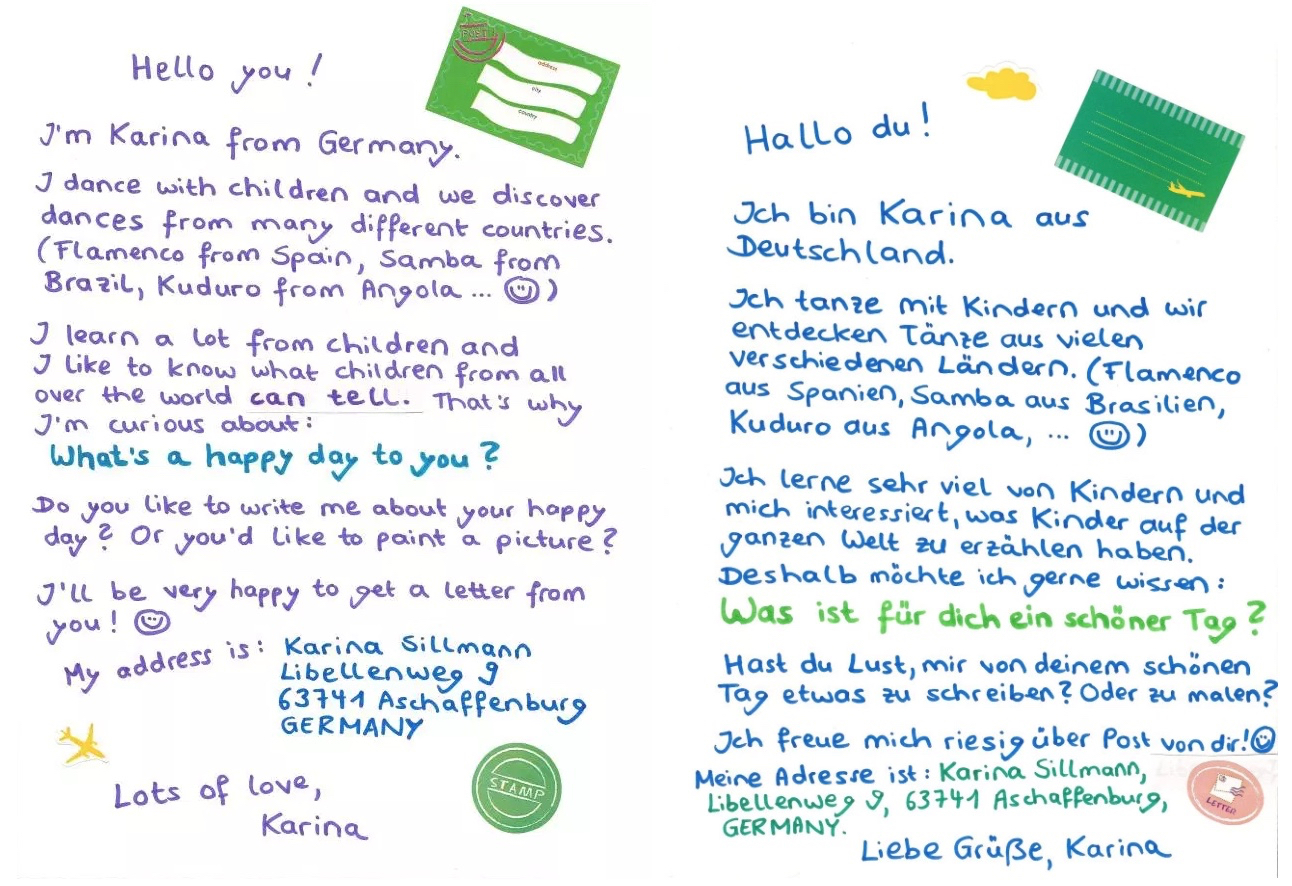 Hello you!
POST
address
city
country
I'm Karina from Germany.
I dance with children and we discover
dances from many different countries.
(Flamenco from Spain, Samba from
Brazil, Kuduro from Angola ... ☺)
I learn a lot from children and
I like to know what children from all
over the world can tell. That's why
I'm curious about:
What's a happy day to you?
Do you like to write me about your happy
day? Or you'd like to paint a picture?
I'll be very happy to get a letter from
you! ☺
My address is: Karina Sillmann
Libellenweg 9
63741 Aschaffenburg
GERMANY
STAMP
Lots of love,
Karina
Hallo du!
Ich bin Karina aus
Deutschland.
Ich tanze mit Kindern und wir
entdecken Tänze aus vielen
verschiedenen Ländern. (Flamenco
aus Spanien, Samba aus Brasilien,
Kuduro aus Angola, ... ☺)
Ich lerne sehr viel von Kindern und
mich interessiert, was Kinder auf der
ganzen Welt zu erzählen haben.
Deshalb möchte ich gerne wissen:
Was ist für dich ein schöner Tag?
Hast du Lust, mir von deinem schönen
Tag etwas zu schreiben? Oder zu malen?
Ich freue mich riesig über Post von dir!☺
Meine Adresse ist: Karina Sillmann,
Libellenweg 9, 63741 Aschaffenburg,
GERMANY.
LETTER
Liebe Grüße, Karina